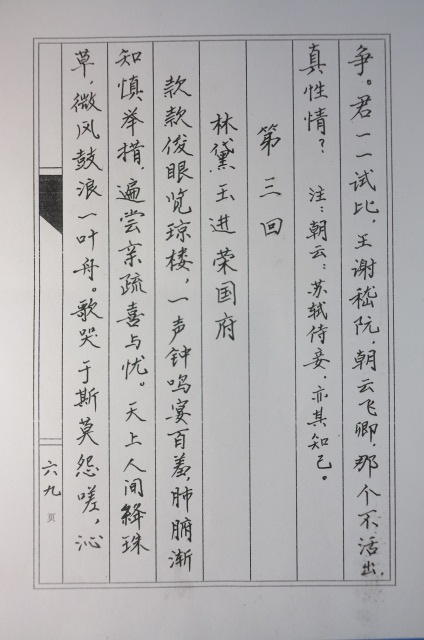 争。君一一试比，王谢嵇阮，朝云飞卿，那个不活出
真性情？ 注：朝云：苏轼侍妾，亦其知己。
第三回
林黛玉进荣国府
款款俊眼览琼楼，一声钟鸣宴百羞，肺腑渐
知慎举措，遍尝亲疏喜与忧。天上人间绛珠
草，微风鼓浪一叶舟。歌哭于斯莫怨嗟，沁
六九页